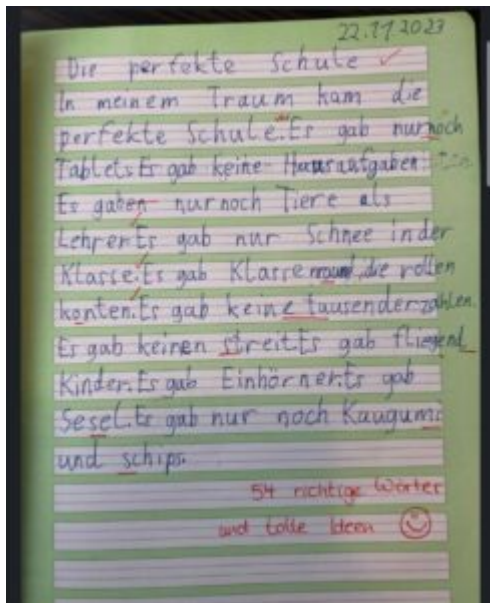 22.11.2023
Die perfekte Schule
In meinem Traum kam die
perfekte Schule. Es gab nur noch
Tablets. Es gab keine Hausaufgaben.
Es gaben nur noch Tiere als
Lehrer. Es gab nur Schnee in der
Klasse. Es gab Klasse die rollen
konten. Es gab keine tausenderzahlen.
Es gab keinen streit. Es gab fliegend
Kinder. Es gab Einhörner. Es gab
Sesel. Es gab nur noch Kaugumi
und schips.
54 richtige Wörter
und tolle Ideen